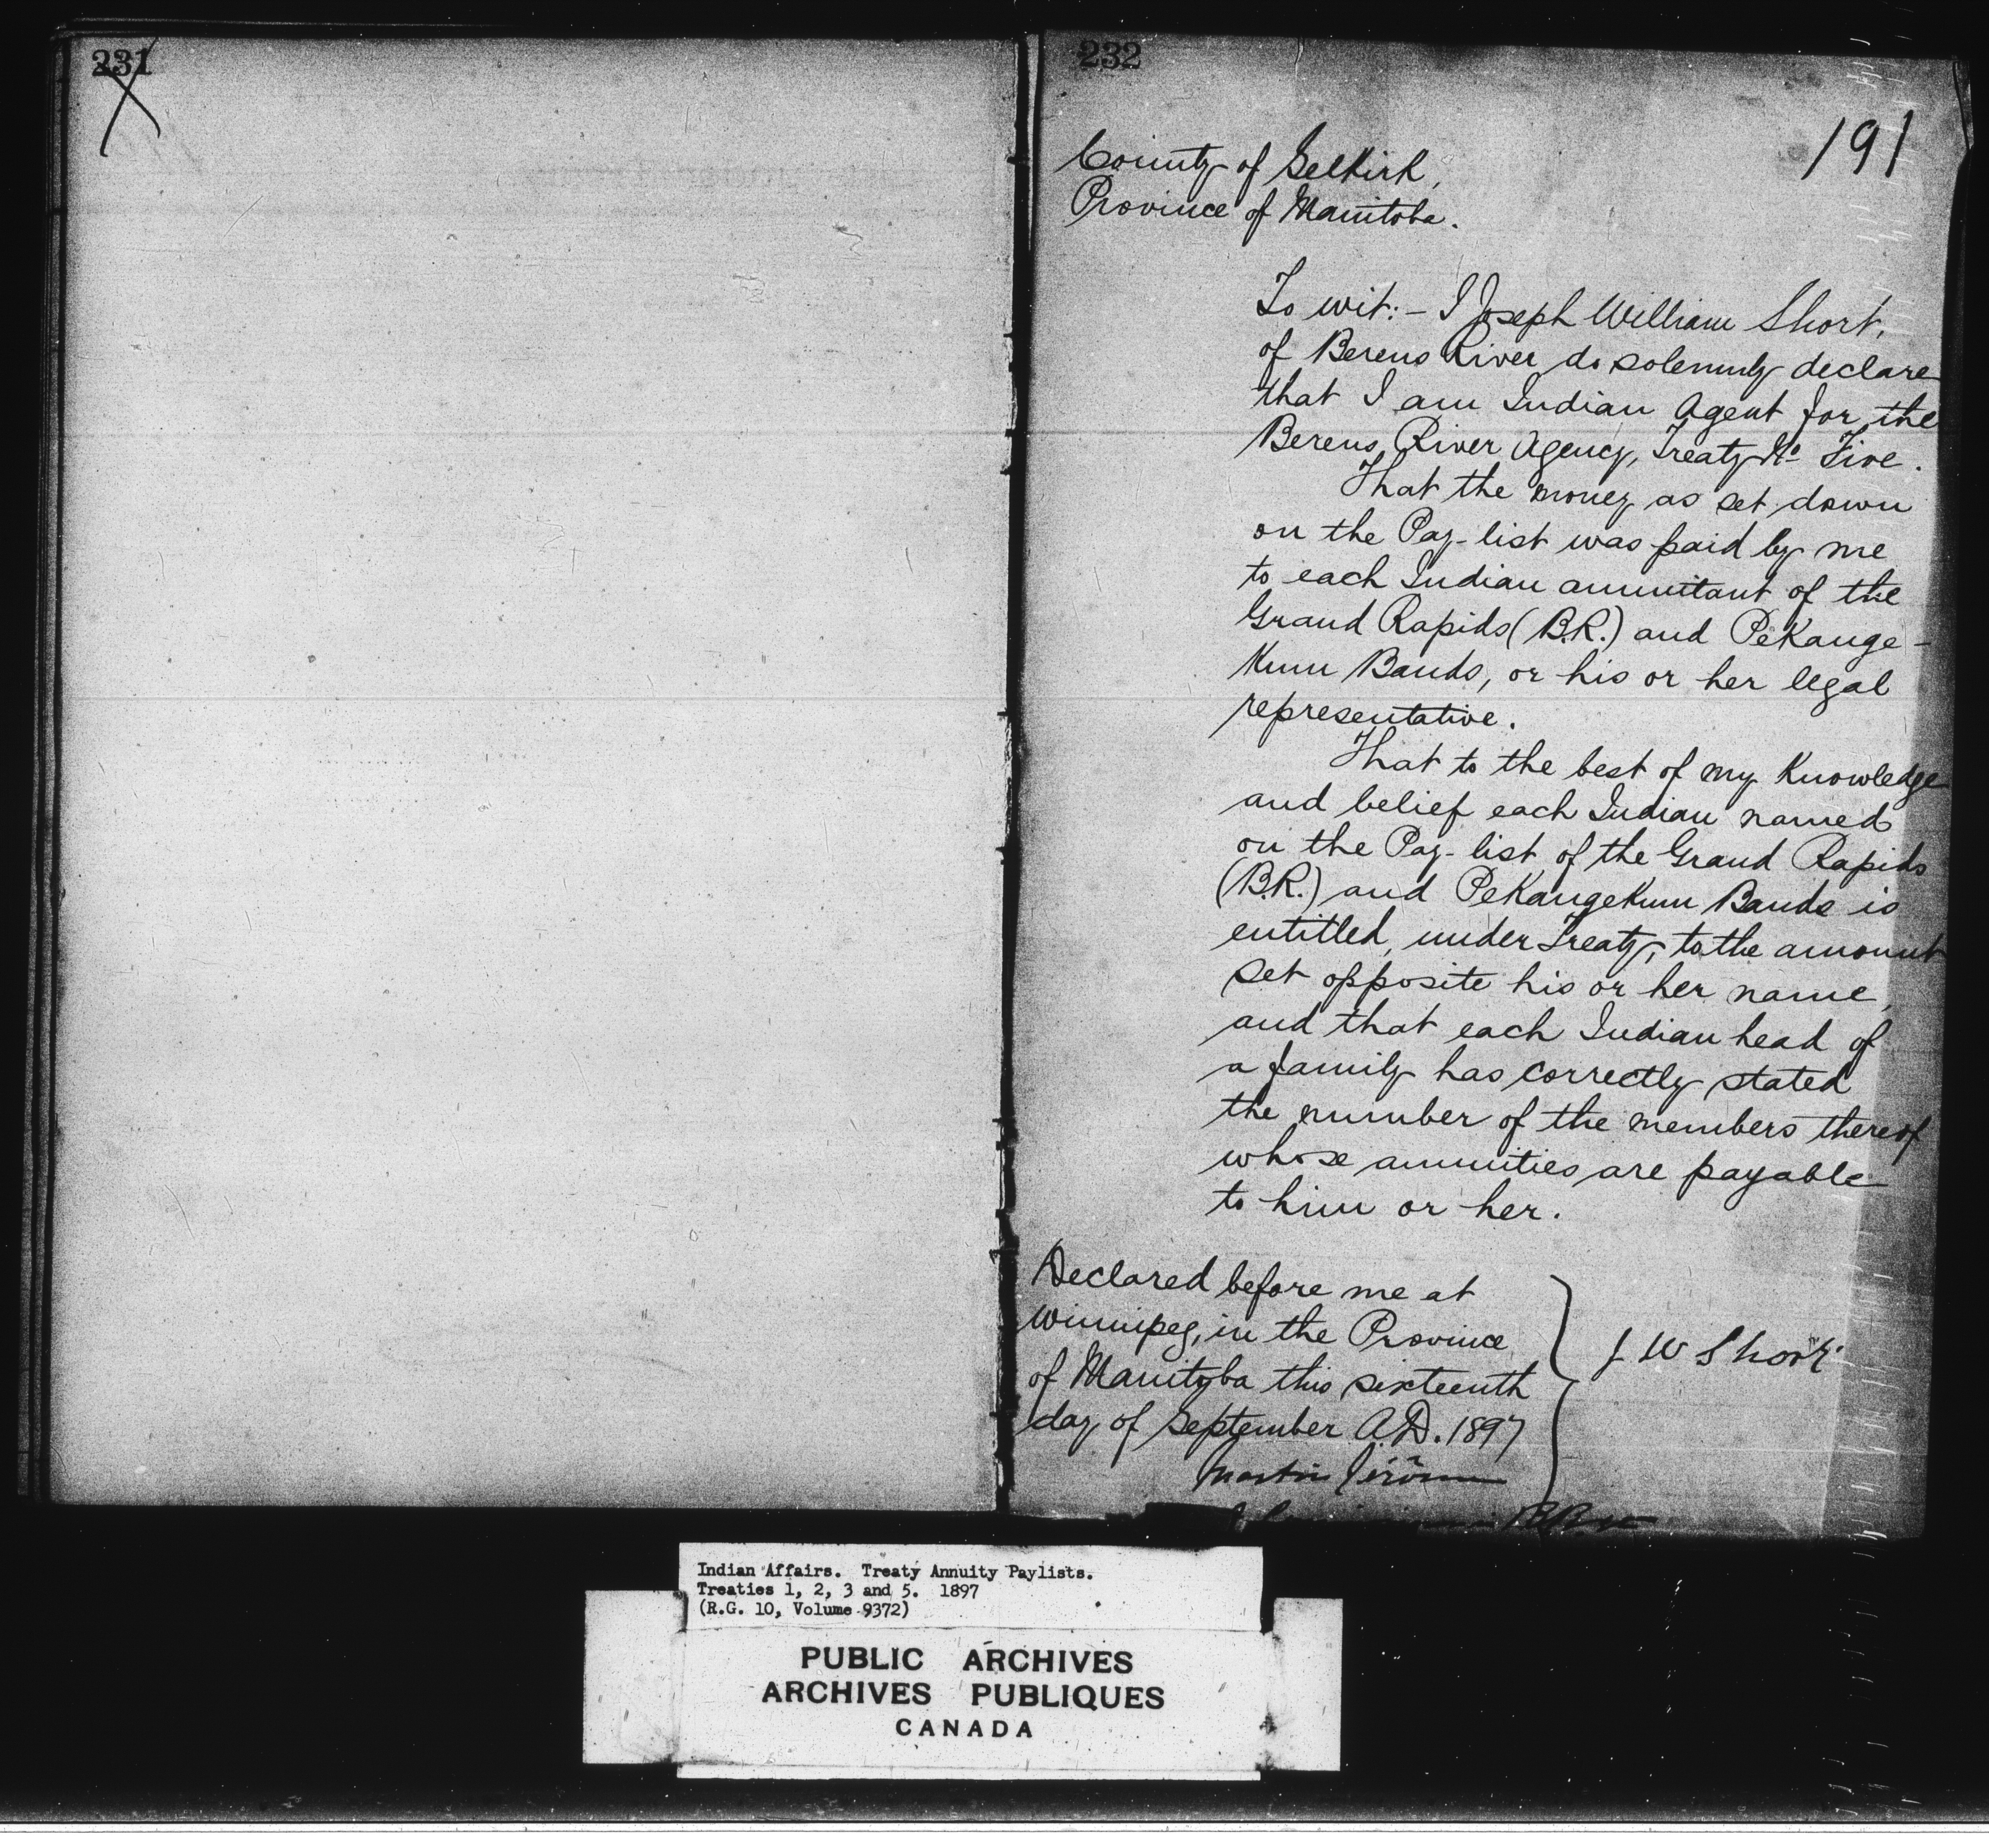 231
232
191
County of Selkirk,
Province of Manitoba.
To wit:- I Joseph William Short,
of Berens River do solemnly declare
that I am Indian Agent for the
Berens River Agency, Treaty No Five.
That the money as set down
on the Pay-list was paid by me
to each Indian annuitant of the
Grand Rapids (B.R.) and PeKange-
Kum Bands, or his or her legal
representative.
That to the best of my Knowledge
and belief each Indian named
on the Pay-list of the Grand Rapids
(B.R.) and PeKangeKum Bands is
entitled, under Treaty, to the amount
set opposite his or her name,
and that each Indian head of
a family has correctly stated
the number of the members thereof
whose annuities are payable
to him or her.
Declared before me at
Winnipeg, in the Province
of Manitoba this sixteenth
day of September A.D. 1897
J W Short
Martin Jérôme
Indian Affairs. Treaty Annuity Paylists.
Treaties 1, 2, 3 and 5. 1897
(R.G. 10, Volume 9372)
PUBLIC ARCHIVES
ARCHIVES PUBLIQUES
CANADA